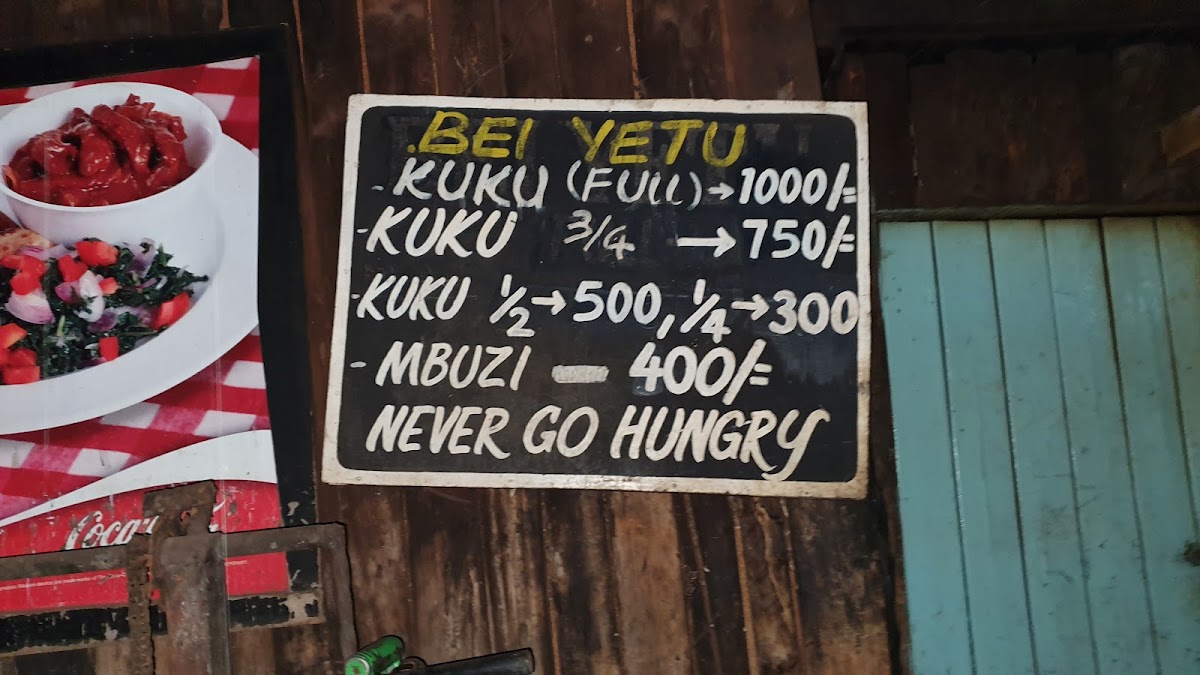 .BEI YETU
- KUKU (FULL) → 1000/=
- KUKU 3/4 → 750/=
- KUKU 1/2 → 500, 1/4 → 300
- MBUZI — 400/=
NEVER GO HUNGRY